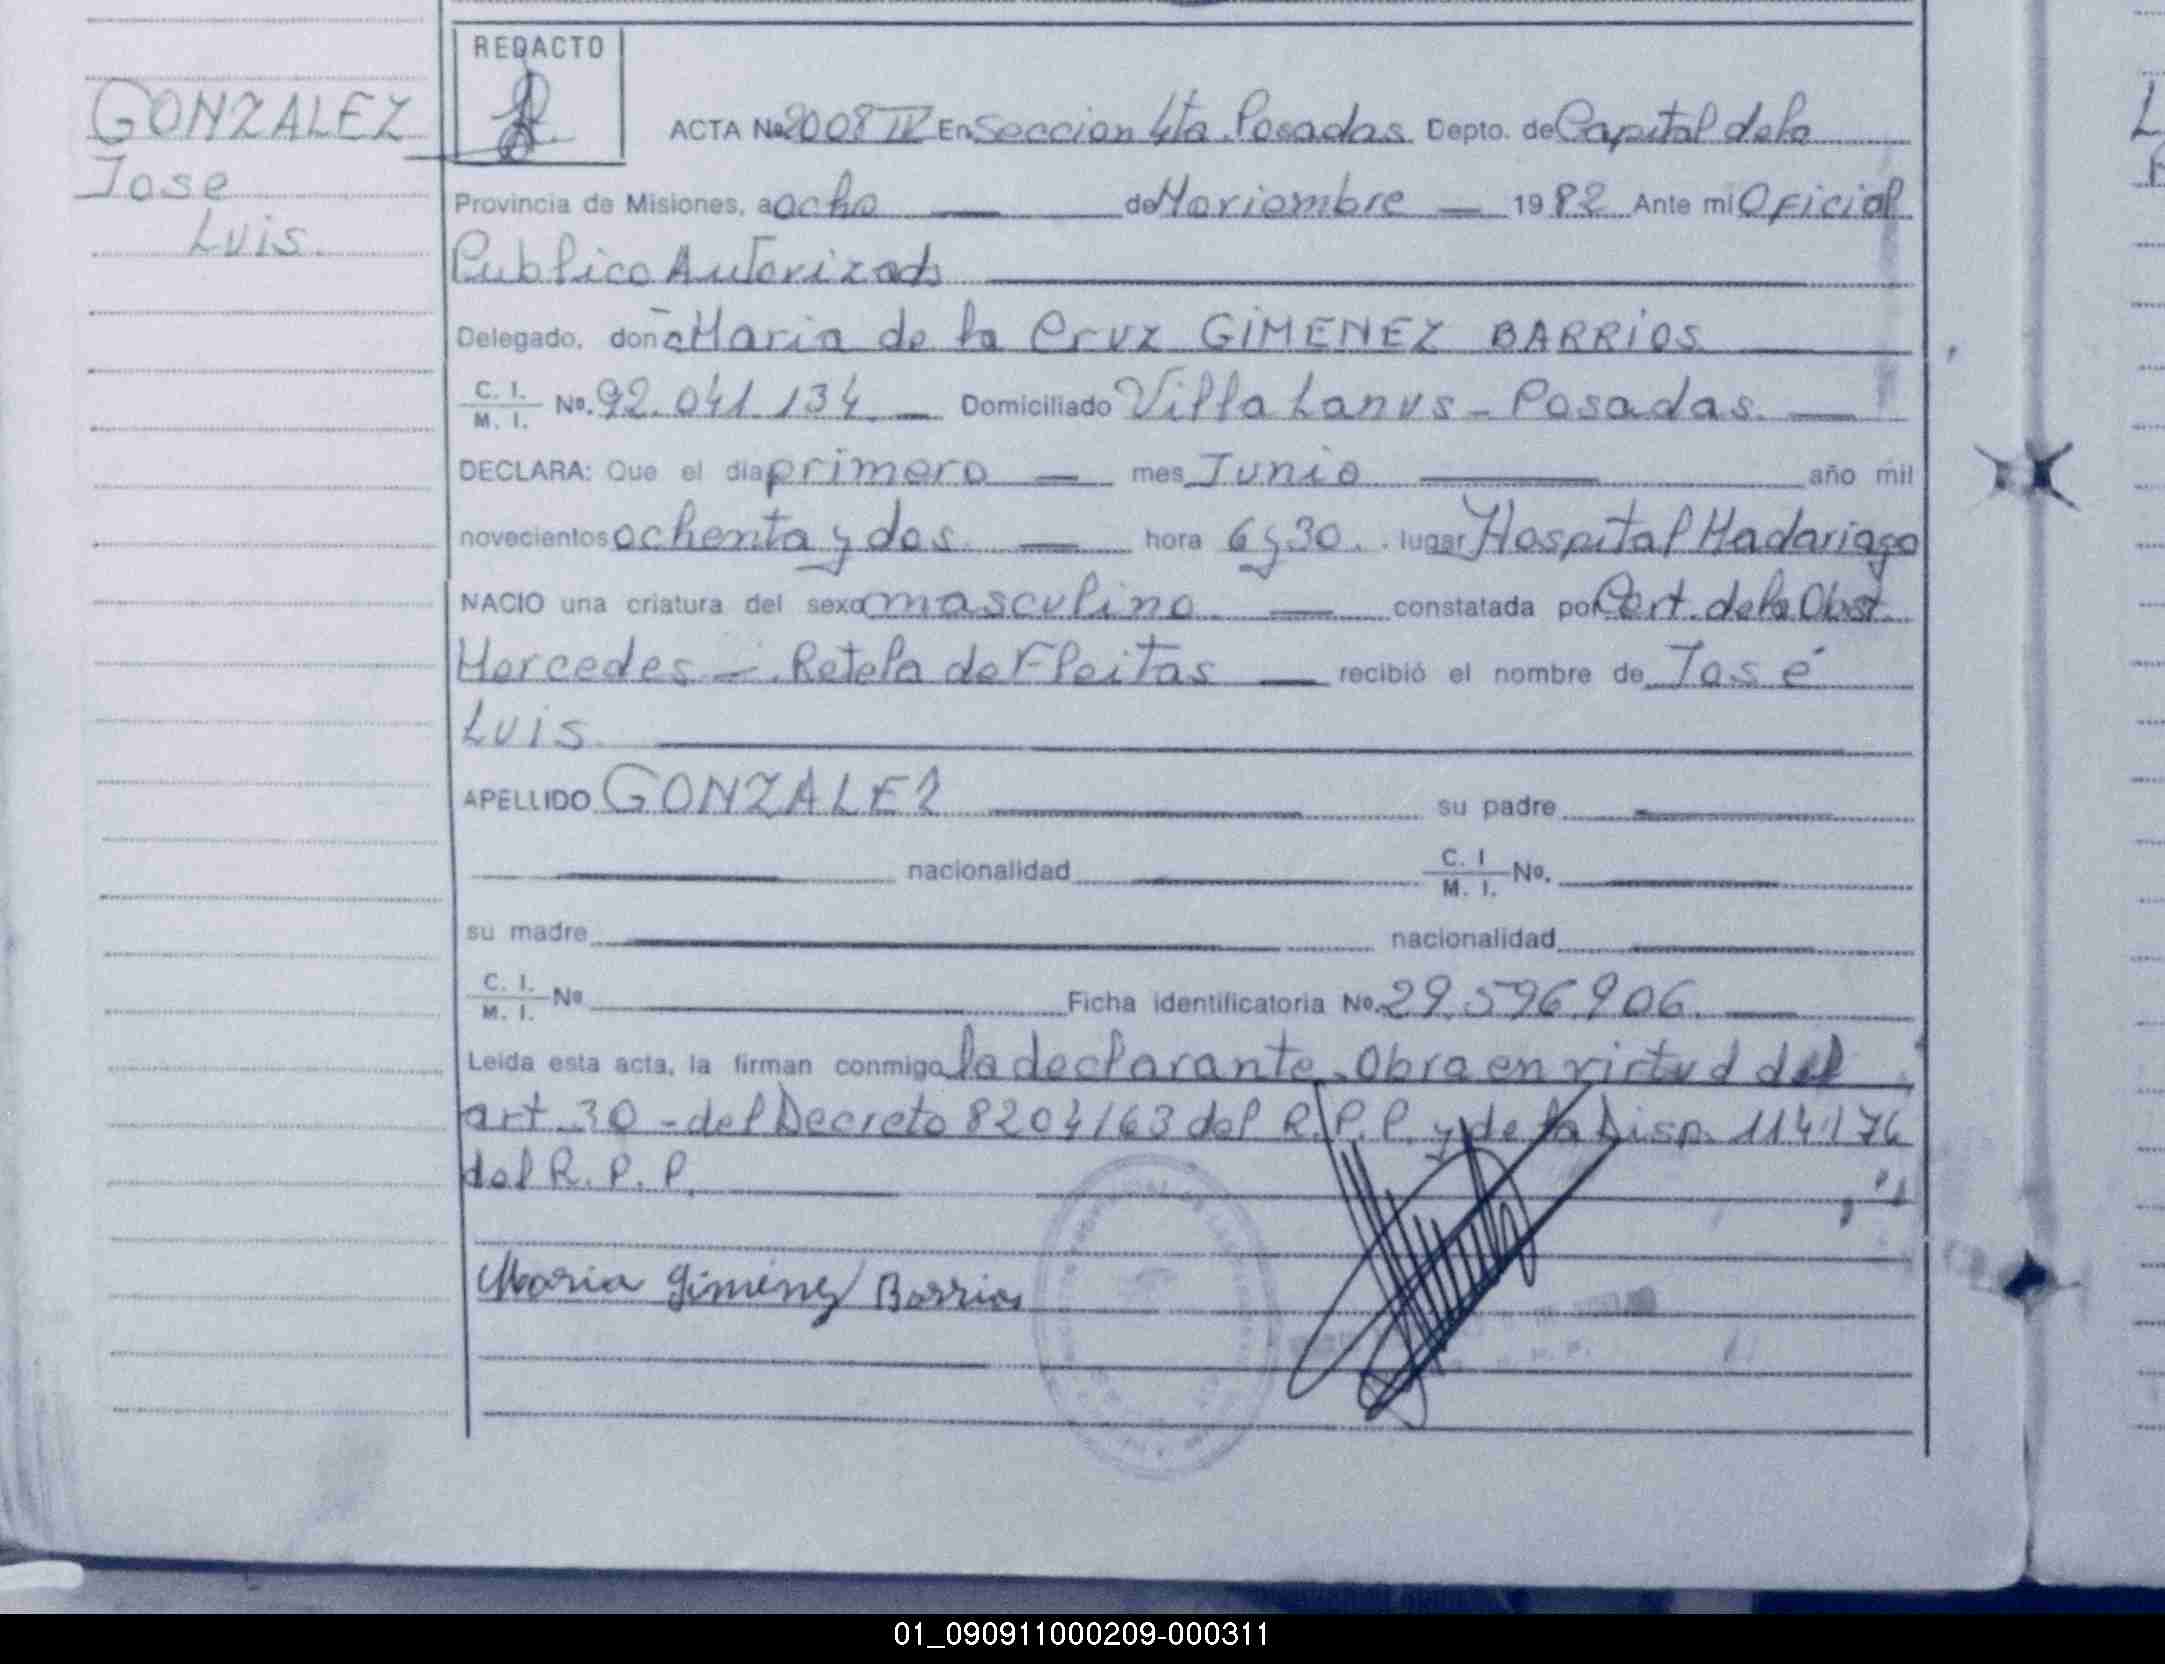 GONZALEZ
Jose
Luis.
REDACTO
ACTA No 2008 IV En Seccion 4ta. Posadas Depto. de Capital de la
Provincia de Misiones, a ocho — de Noviembre — 1982 Ante mi Oficial
Publico Autorizado
Delegado, doña Maria de la Cruz GiMENEZ BARRiOS
C. I. / M. I. No. 92.041.134. — Domiciliado Villa Lanus - Posadas. —
DECLARA: Que el dia primero — mes Junio — año mil
novecientos ochenta y dos. — hora 6 y 30. lugar Hospital Madariaga
NACIO una criatura del sexo masculino — constatada por Cert. de la Obst.
Mercedes - Retela de Fleitas — recibió el nombre de José
Luis.
APELLIDO GONZALEZ — su padre —
— nacionalidad — C. I / M. I. No. —
su madre — nacionalidad —
C. I. / M. I. No — Ficha identificatoria No. 29.596.906. —
Leida esta acta, la firman conmigo la declarante. Obra en virtud del
art. 30 - del Decreto 8204/63 del R.P.P. y de la Disp. 114/76
del R. P. P.
Maria Gimenez Barrios
01_090911000209-000311